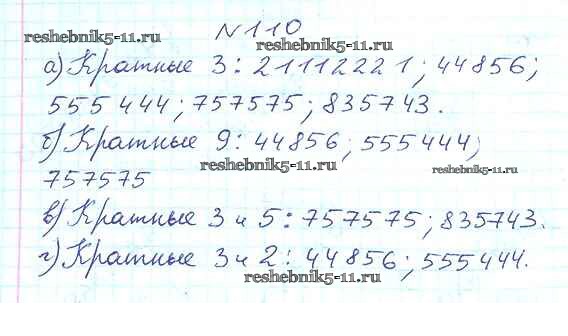 №110
reshebnik5-11.ru
reshebnik5-11.ru
а) Кратные 3: 21112221; 44856;
555444; 757575; 835743.
б) Кратные 9: 44856; 555444;
reshebnik5-11.ru
reshebnik5-11.ru
757575
в) Кратные 3 и 5: 757575; 835743.
г) Кратные 3 и 2: 44856; 555444.
reshebnik5-11.ru